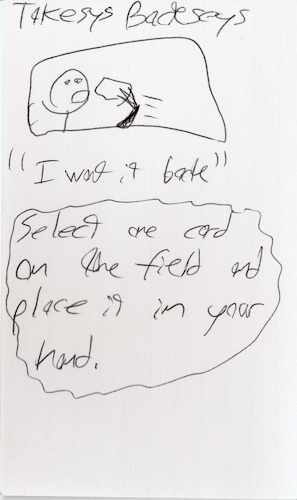 Takesys Backseys
"I want it back"
Select one card
on the field and
place it in your
hand.